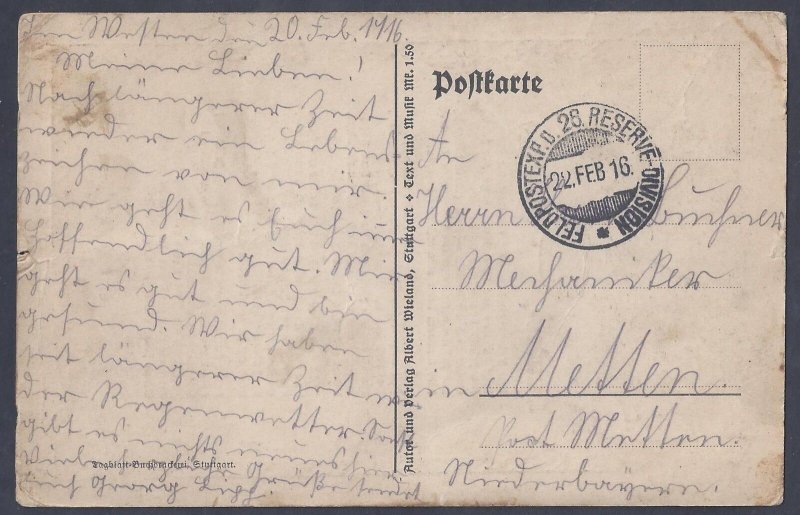 Im Westen den 20. Feb. 1916.
Meine Lieben!
Nach längerer Zeit
wieder ein Lebens-
zeichen von mir.
Wie geht es Euch immer
hoffendlich gut. Mir
geht es gut und bin
gesund. Wir haben
seit längerer Zeit wie
der Regenwetter. Sonst
gibt es nichts neues hier
Viele Grüße sendet
Euch Georg
Tagblatt-Buchdruckerei, Stuttgart.
Autor und Verlag Albert Wieland, Stuttgart ✦ Text und Musik Mk. 1.50
Postkarte
FELDPOSTEXP. D. 28. RESERVE-DIVISION *
22. FEB 16.
An
Herrn Buchner
Mechaniker
in Metten.
Post Metten.
Niederbayern.